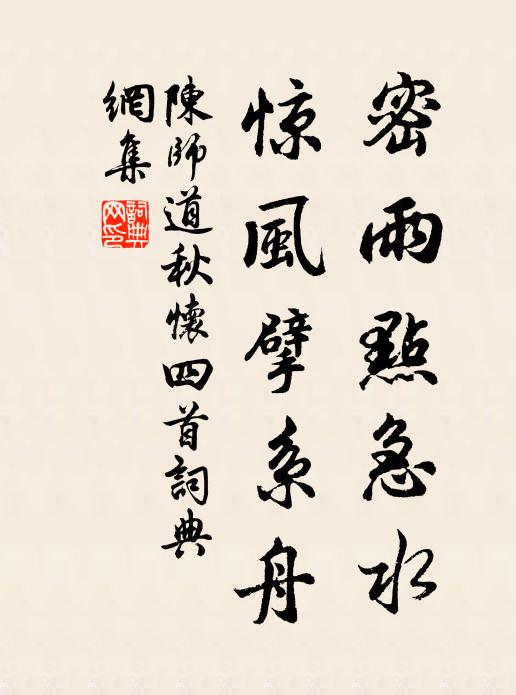 密雨點急水
惊風擘系舟
陳師道秋懷四首詞典
網集
詞典網印